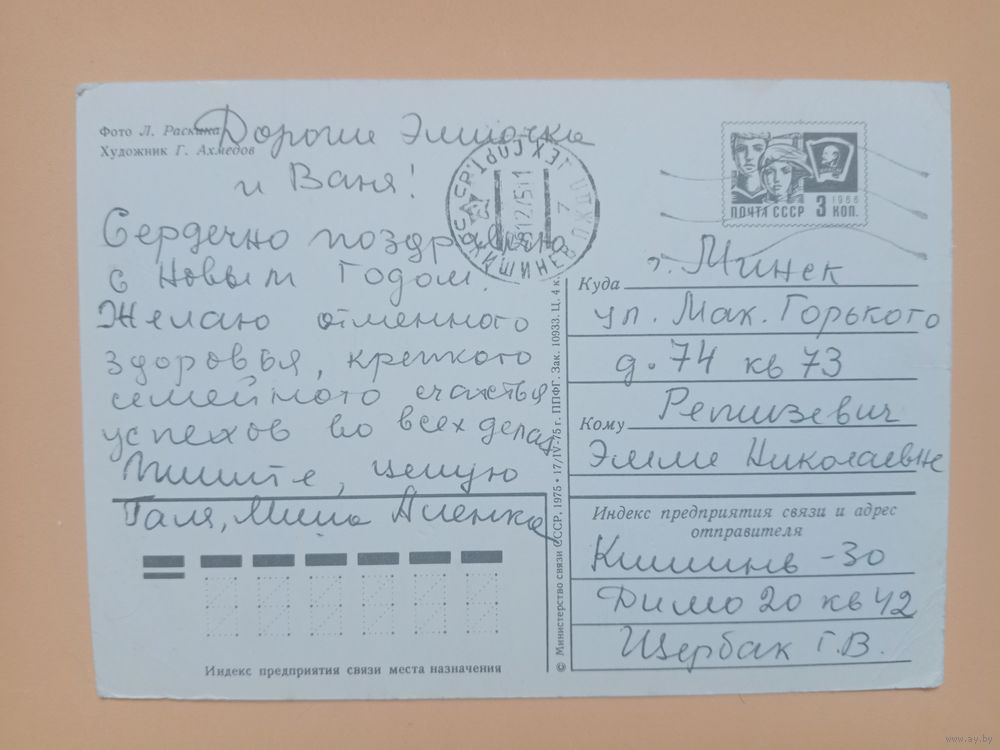 Фото Л. Раскина
Художник Г. Ахмедов
Дорогие Эммочка
и Ваня!
Сердечно поздравляю
с Новым Годом.
Желаю отменного
здоровья, крепкого
семейного счастья
успехов во всех делах
Пишите, целую
Галя, Миша Аленка
Индекс предприятия связи места назначения
© Министерство связи СССР, 1975 • 17/IV-75 г. ППФГ. Зак. 10933. Ц. 4 к.
КИШИНЕВ
1966
ПОЧТА СССР 3 КОП.
Куда г. Минск
ул. Мак. Горького
д. 74 кв 73
Кому Репизевич
Эмме Николаевне
Индекс предприятия связи и адрес
отправителя
Кишинев -30
Димо 20 кв 42
Щербак Г.В.
www.ay.by